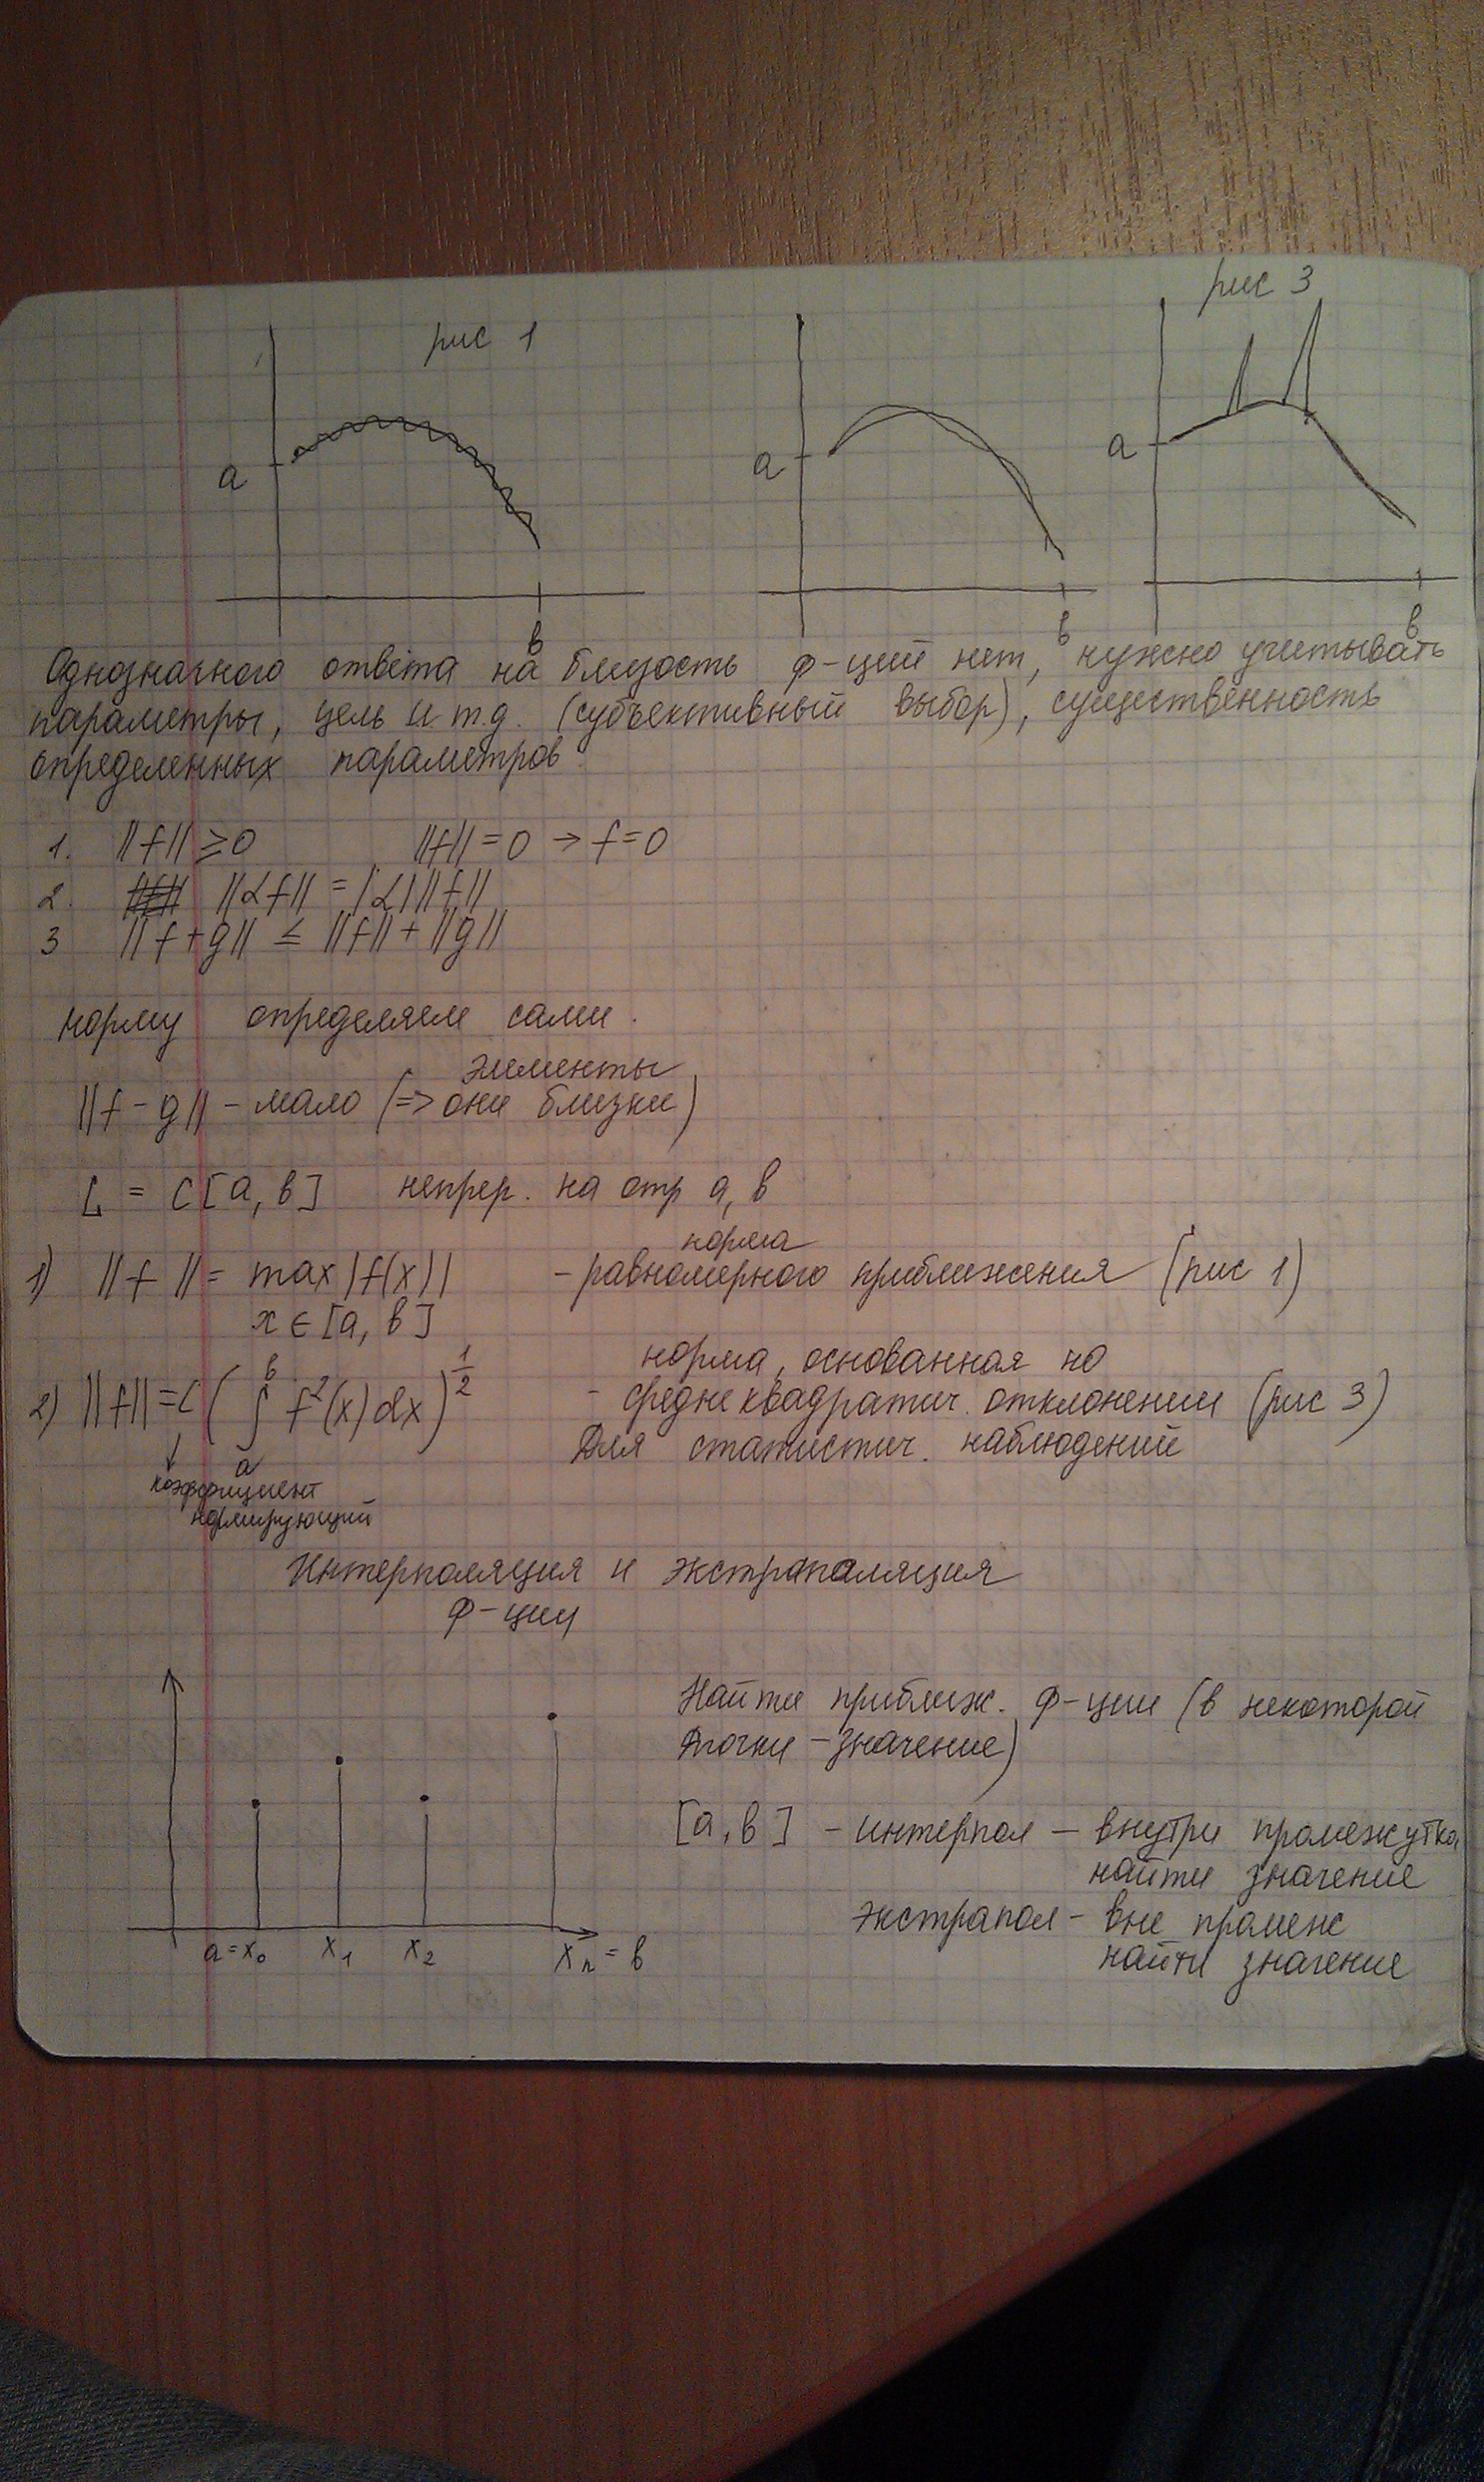 рис 1
рис 3
а
а
а
в
в
в
Однозначного ответа на близость ф-ций нет, нужно учитывать
параметры, цель и т.д. (субъективный выбор), существенность
определенных параметров
1. ||f|| ≥ 0 ||f|| = 0 → f = 0
2. ||αf|| = |α| ||f||
3 ||f + g|| ≤ ||f|| + ||g||
норму определяем сами.
элементы
||f - g|| - мало (=> они близки)
L = C [a, в] непрер. на отр а, в
норма
1) ||f|| = max |f(x)| - равномерного приближения (рис 1)
x ∈ [a, в]
норма, основанная на
2) ||f|| = C (∫ₐᵇ f²(x) dx)^(1/2) - среднеквадратич. отклонении (рис 3)
Для статистич. наблюдений
коэффициент
нормирующий
Интерполяция и экстраполяция
ф-ции
Найти приближ. ф-ции (в некоторой
точки - значение)
[a, в] - интерпол - внутри промежутка
найти значение
экстрапол - вне промеж
найти значение
a = x₀ x₁ x₂ xₙ = в